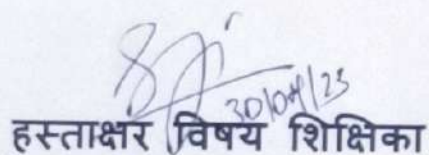 30/04/23
हस्ताक्षर विषय शिक्षिका